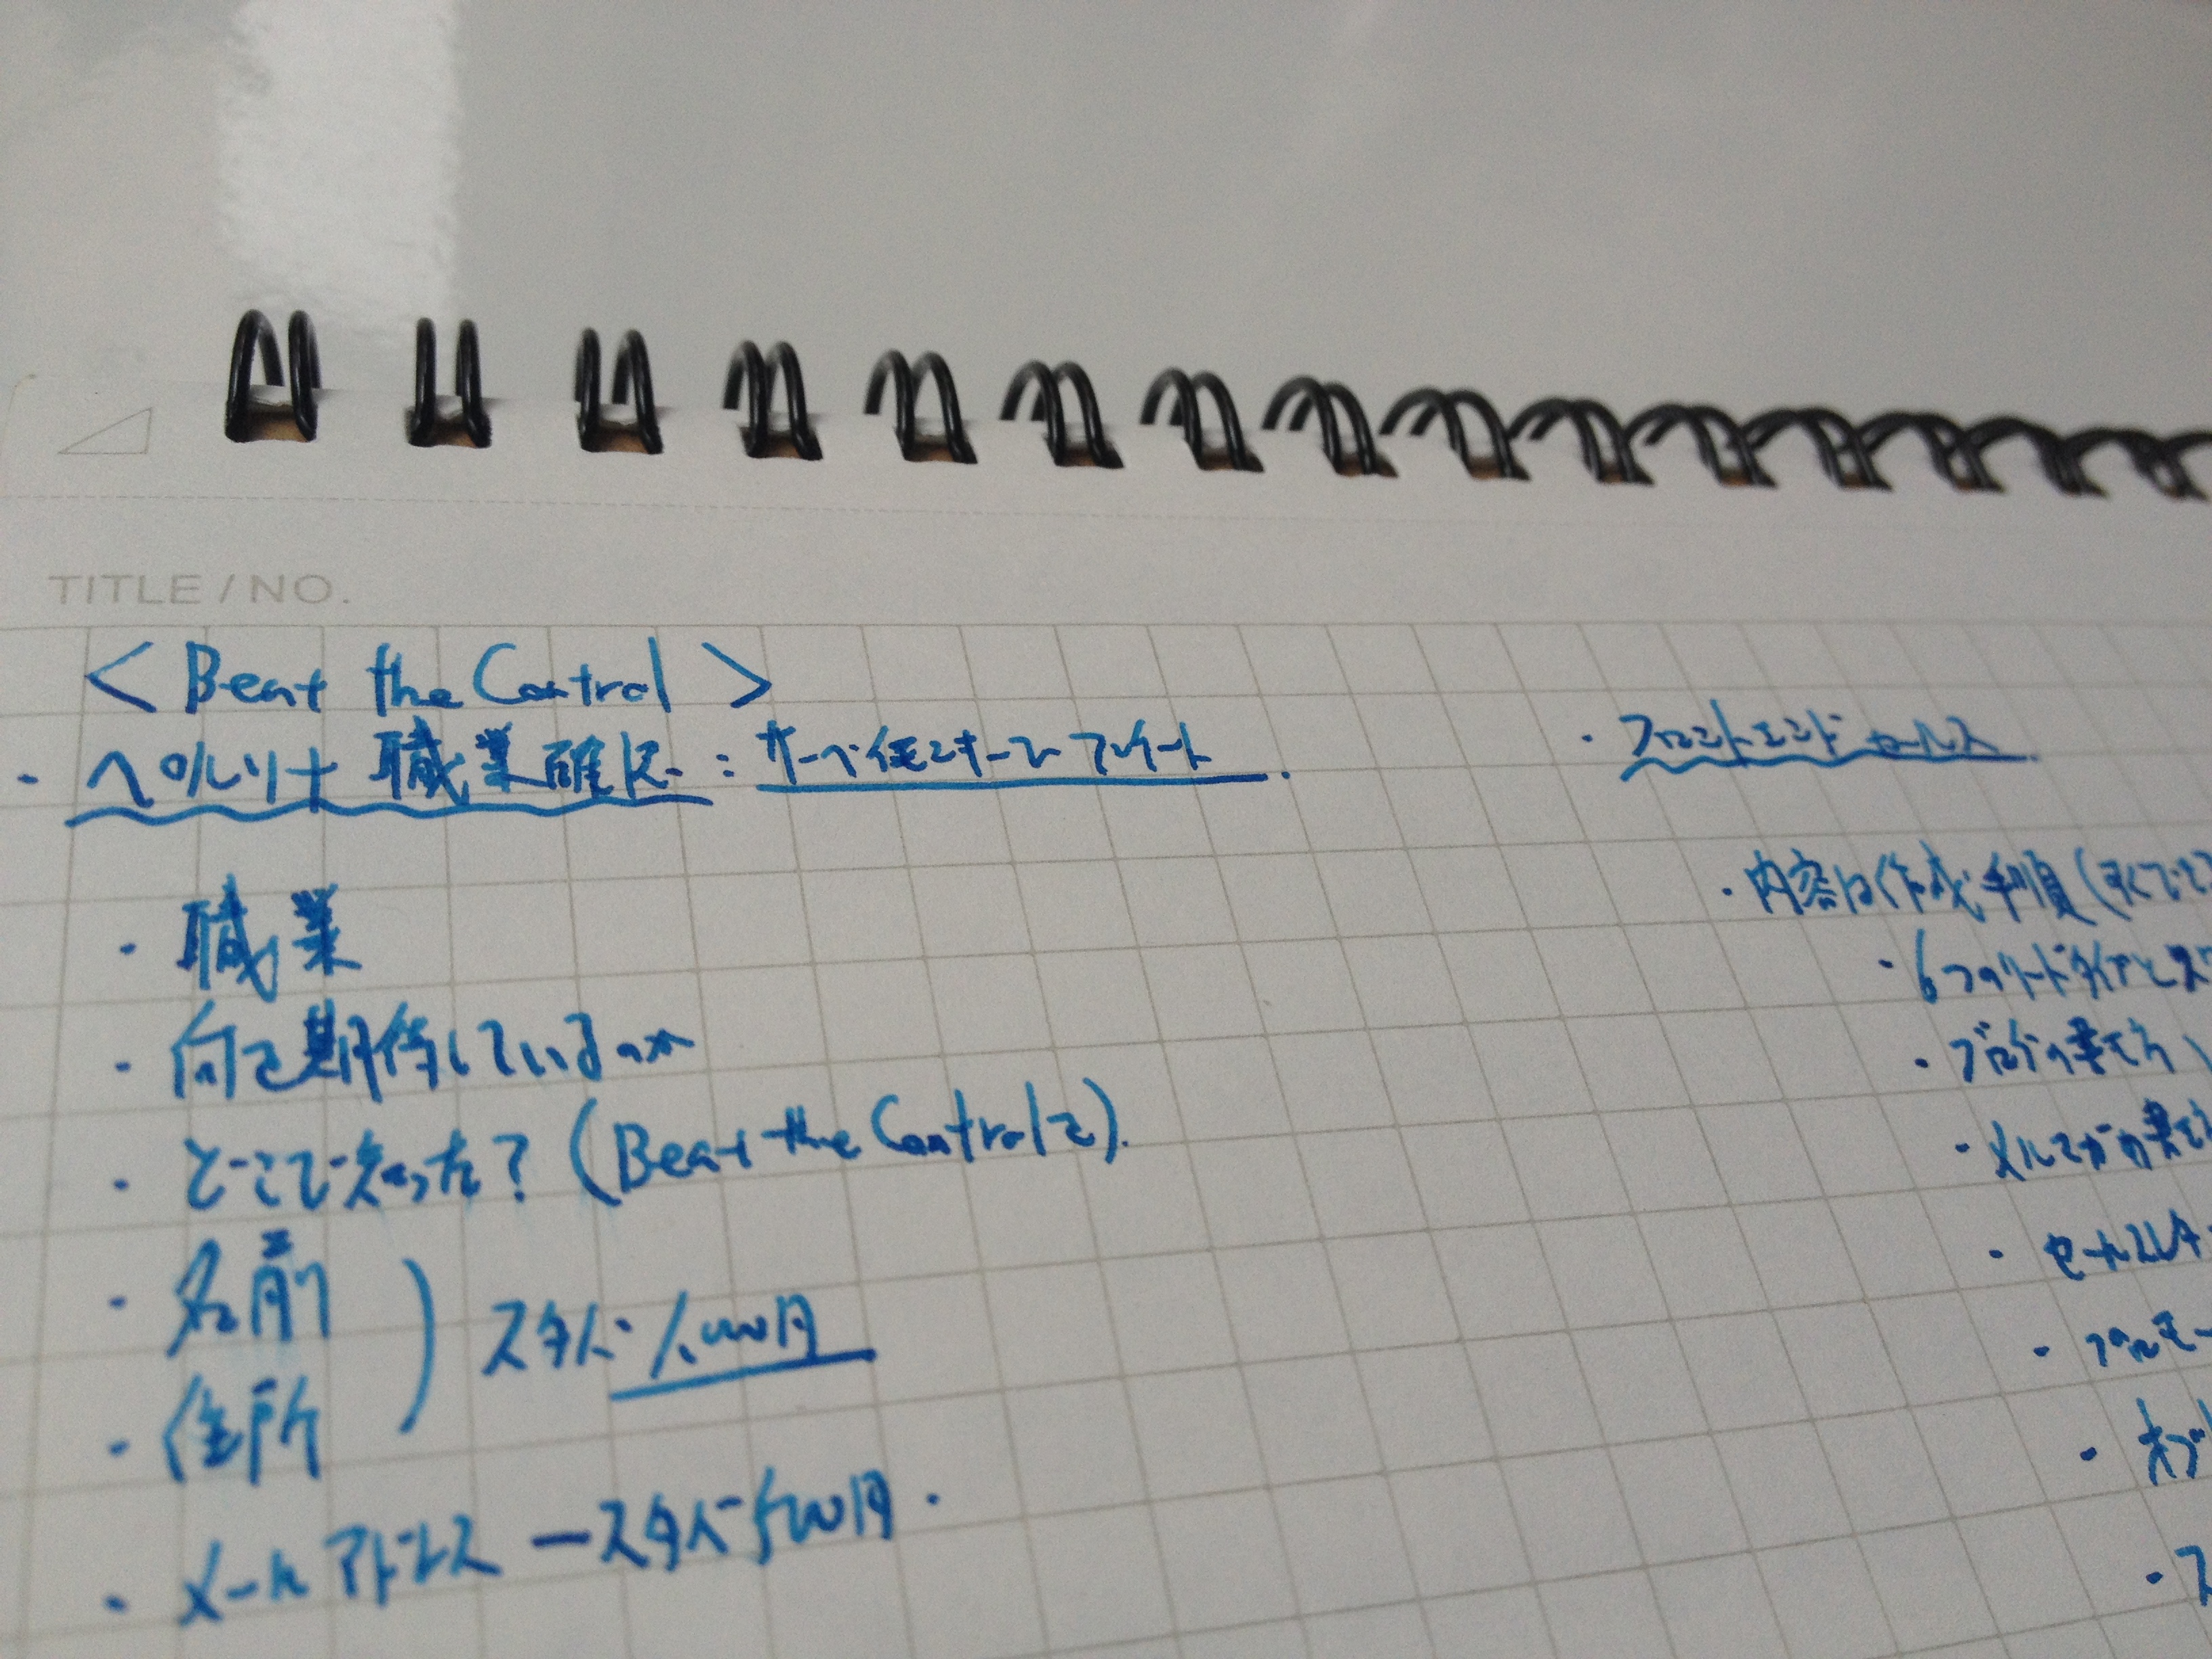 TITLE / NO.
< Beat the Control >
・ペルソナ 職業確認：サーベイモンキーアンケート.
・職業
・何を期待しているのか
・どこで知った？(Beat the Controlを).
・名前
・住所
スタバ 1,000円
・メールアドレス ースタバ 500円.
・フロントエンドセールス
・内容は作成手順(
・6つのリードタイプと
・ブログの書き方
・メルマガの書き方
・セールスレター
・プロモー
・オプ
・ス